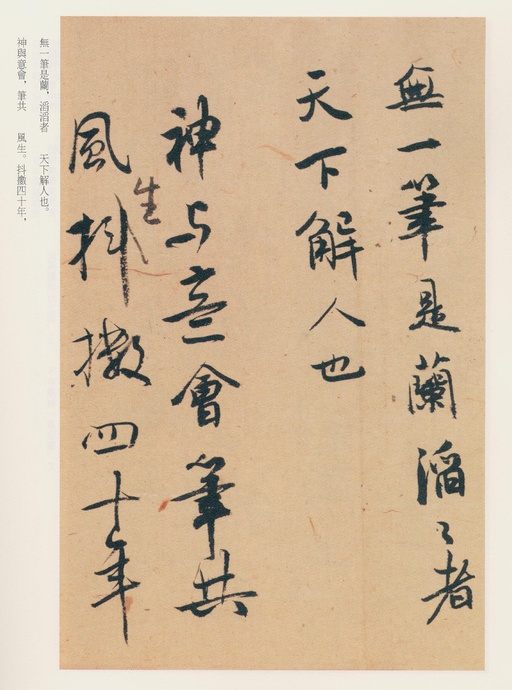 無一筆是蘭滔〻者
天下解人也
神与意會筆共
風生抖擻四十年
無一筆是蘭，滔滔者　天下解人也。
神與意會，筆共　風生。抖擻四十年，